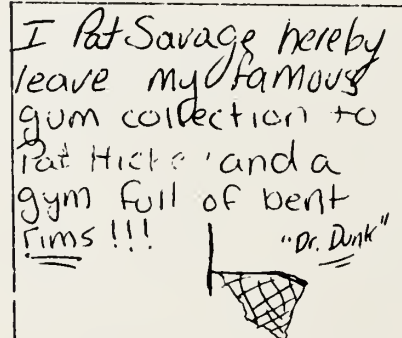 I Pat Savage hereby
leave my famous
gum collection to
Pat and a
gym full of bent
rims !!!
"Dr. Dunk"